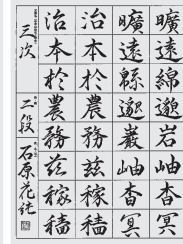 曠遠綿邈岩岫杳冥
曠遠緜邈巖岫杳冥
治本於農務茲稼穡
治本於農務茲稼穡
三次 二段 石原花